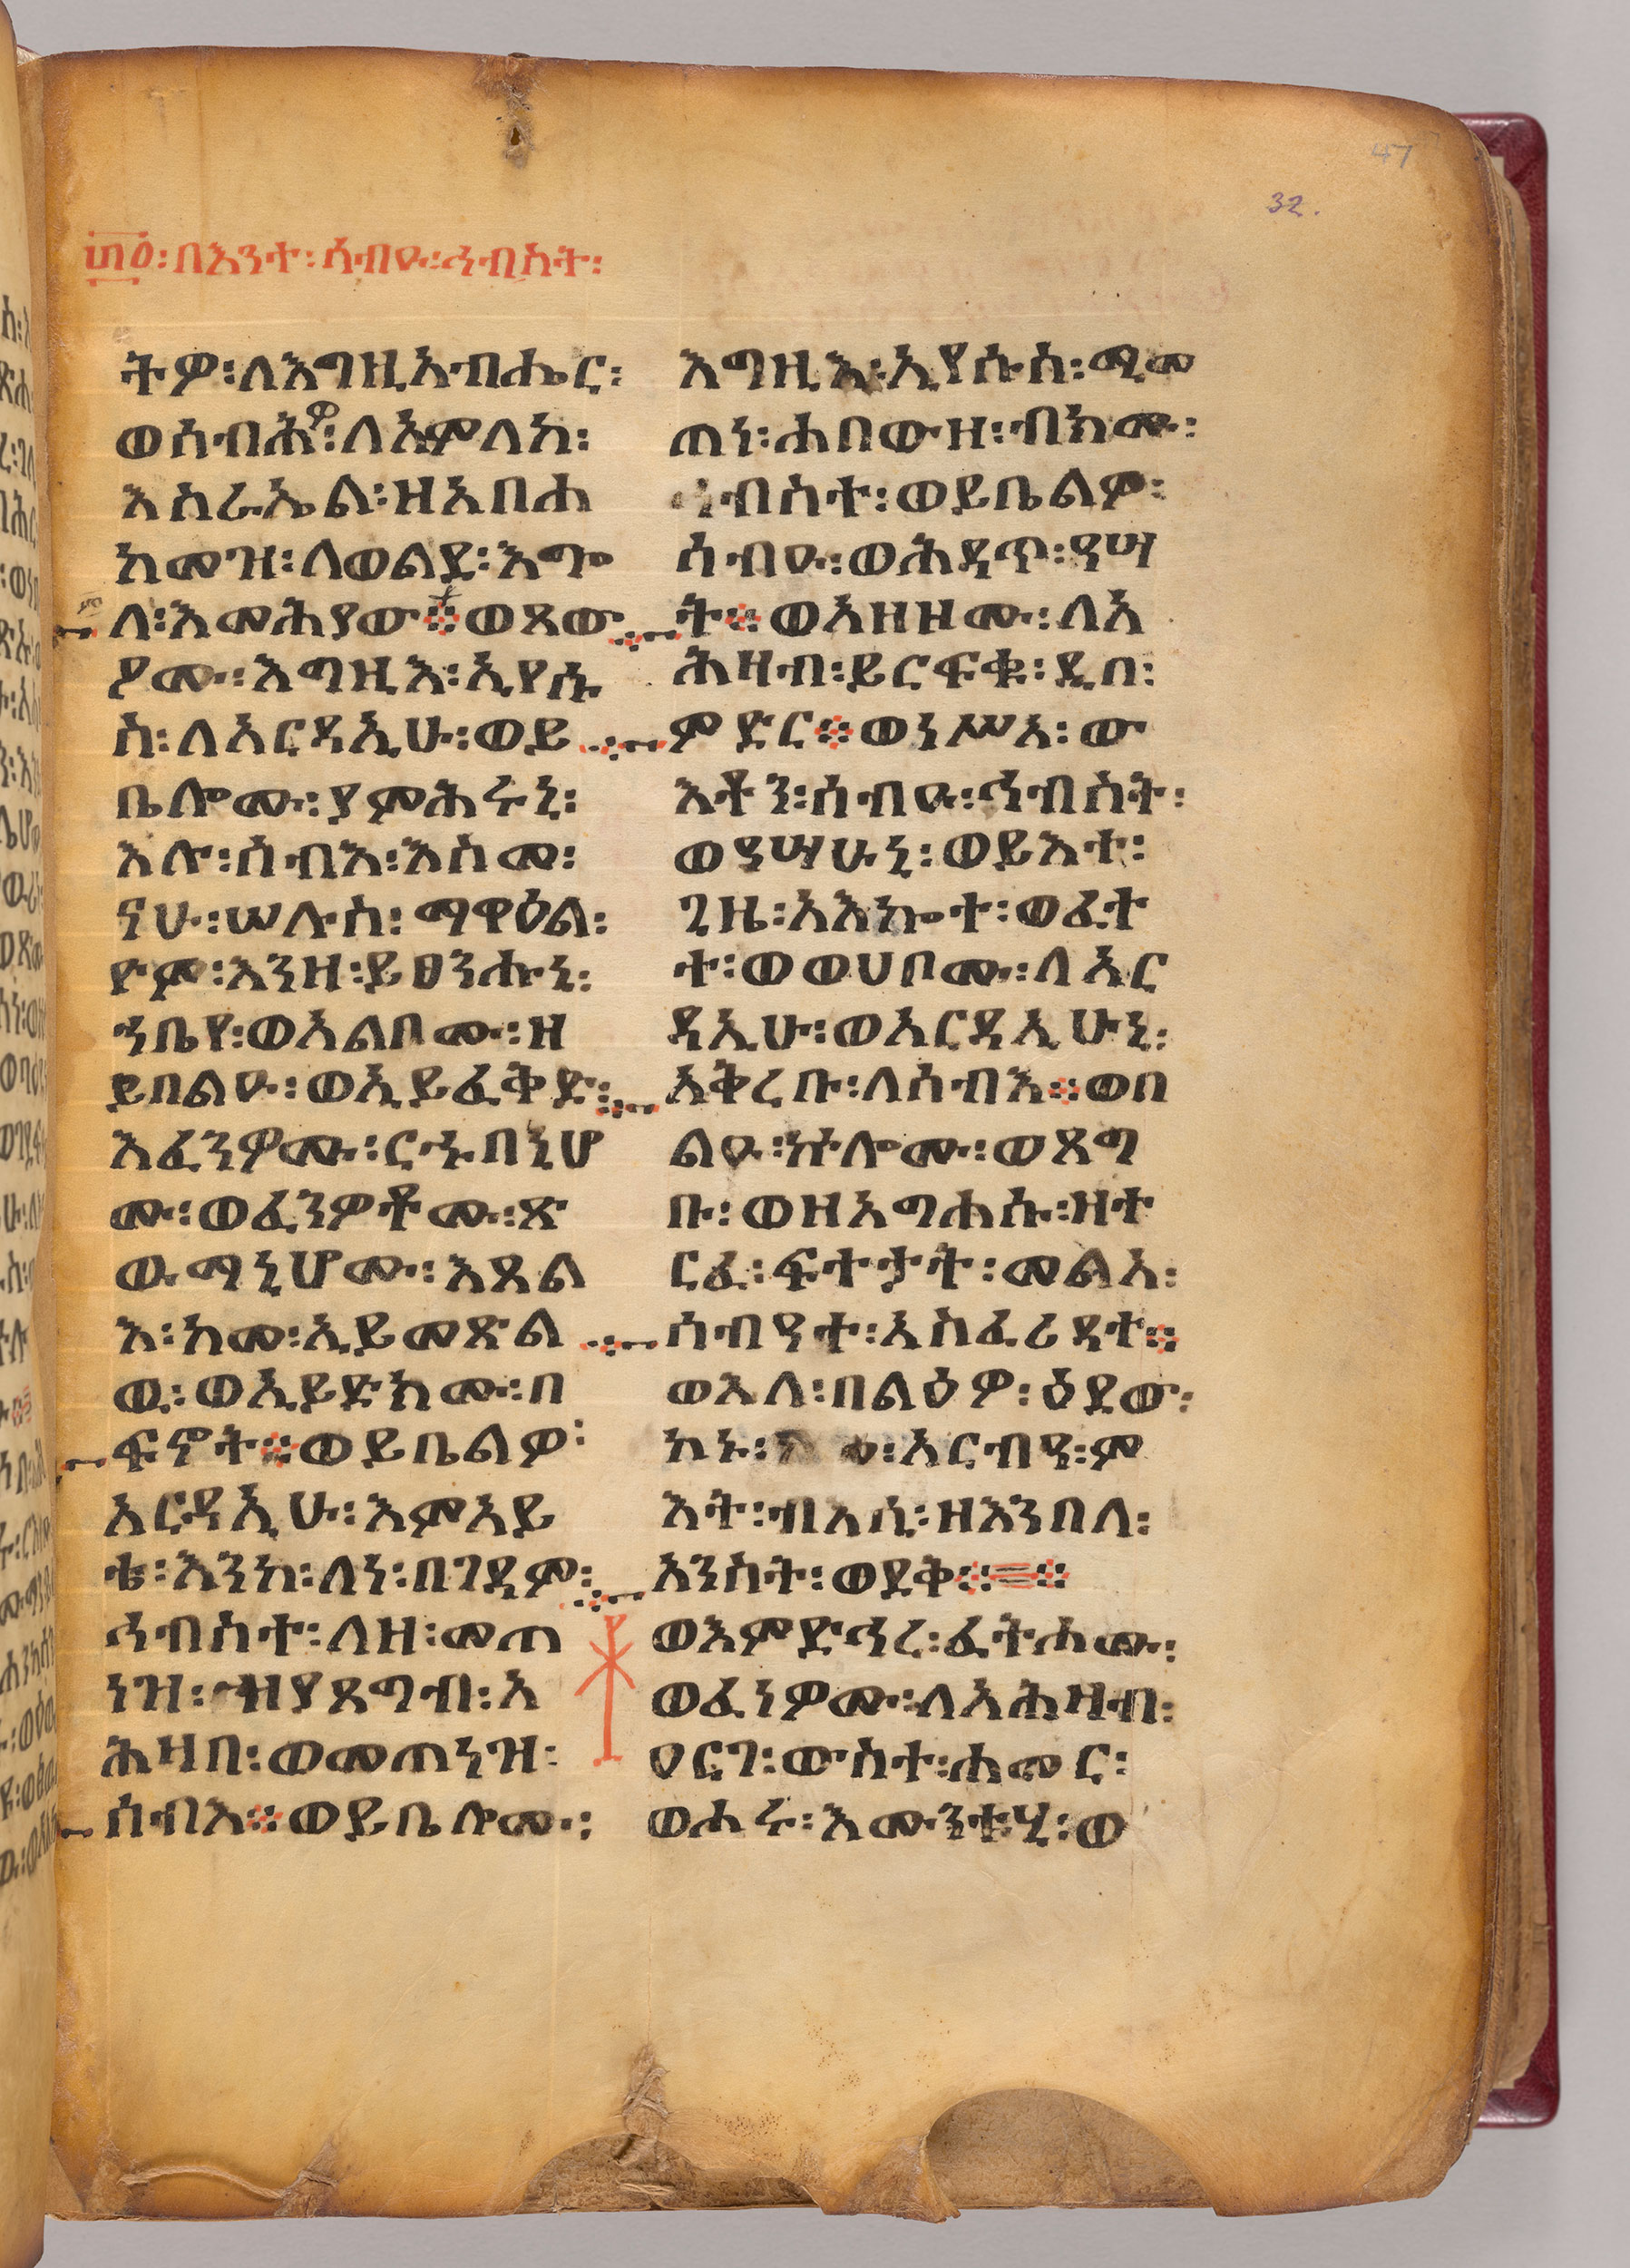 47
32.
፴፬፡በእንተ፡ሰብዑ፡ኅብስት፡
ትዎ፡ለእግዚአብሔር፡
ወሰብሕዎ፡ለአምላከ፡
እስራኤል፡ዘአበሐ
ከመዝ፡ለወልደ፡እጓ
ለ፡እመሕያው፨ወጸው
ዖሙ፡እግዚእ፡ኢየሱ
ስ፡ለአርዳኢሁ፡ወይ
ቤሎሙ፡ያምሕሩኒ፡
እሉ፡ሰብእ፡እስመ፡
ናሁ፡ሠሉስ፡ማዋዕል፡
ዮም፡እንዘ፡ይፀንሑኒ፡
ኀቤየ፡ወአልቦሙ፡ዘ
ይበልዑ፡ወኢይፈቅድ፡
እፈንዎሙ፡ርኁበኒሆ
ሙ፡ወፈንዎቶሙ፡ጽ
ዉማኒሆሙ፡እጸል
እ፡ከመ፡ኢይመጽል
ዉ፡ወኢይድክሙ፡በ
ፍኖት፨ወይቤልዎ፡
አርዳኢሁ፡እምአይ
ቴ፡እንከ፡ለነ፡በገዳም፡
ኅብስተ፡ለዘ፡መጠ
ነዝ፡ዘያጸግብ፡አ
ሕዛበ፡ወመጠነዝ፡
ሰብአ፨ወይቤሎሙ፡
እግዚእ፡ኢየሱስ፡ሚመ
ጠነ፡ሐበውዘ፡ብክሙ፡
ኅብስተ፡ወይቤልዎ፡
ሰብዑ፡ወሕዳጥ፡ዓሣ
ት፨ወአዘዘሙ፡ለአ
ሕዛብ፡ይርፍቁ፡ዲበ፡
ምድር፨ወነሥአ፡ው
እቶን፡ሰብዑ፡ኅብስት፡
ወዓሣሁኒ፡ወይእተ፡
ጊዜ፡አእኰተ፡ወፈተ
ተ፡ወወሀቦሙ፡ለአር
ዳኢሁ፡ወአርዳኢሁኒ፡
አቅረቡ፡ለሰብእ፨ወበ
ልዑ፡ኵሎሙ፡ወጸግ
ቡ፡ወዘአግሐሱ፡ዘተ
ርፈ፡ፍተታት፡መልአ፡
ሰብዓተ፡አስፈሪዳተ፨
ወእለ፡በልዕዎ፡ዕደው፡
ኮኑ፡አርብዓ፡ም
እት፡ብእሲ፡ዘእንበለ፡
አንስት፡ወደቅ፨፨
ወእምድኅረ፡ፈትሐሙ፡
ወፈነዎሙ፡ለአሕዛብ፡
ዐርገ፡ውስተ፡ሐመር፡
ወሐሩ፡እሙንቱሂ፡ወ